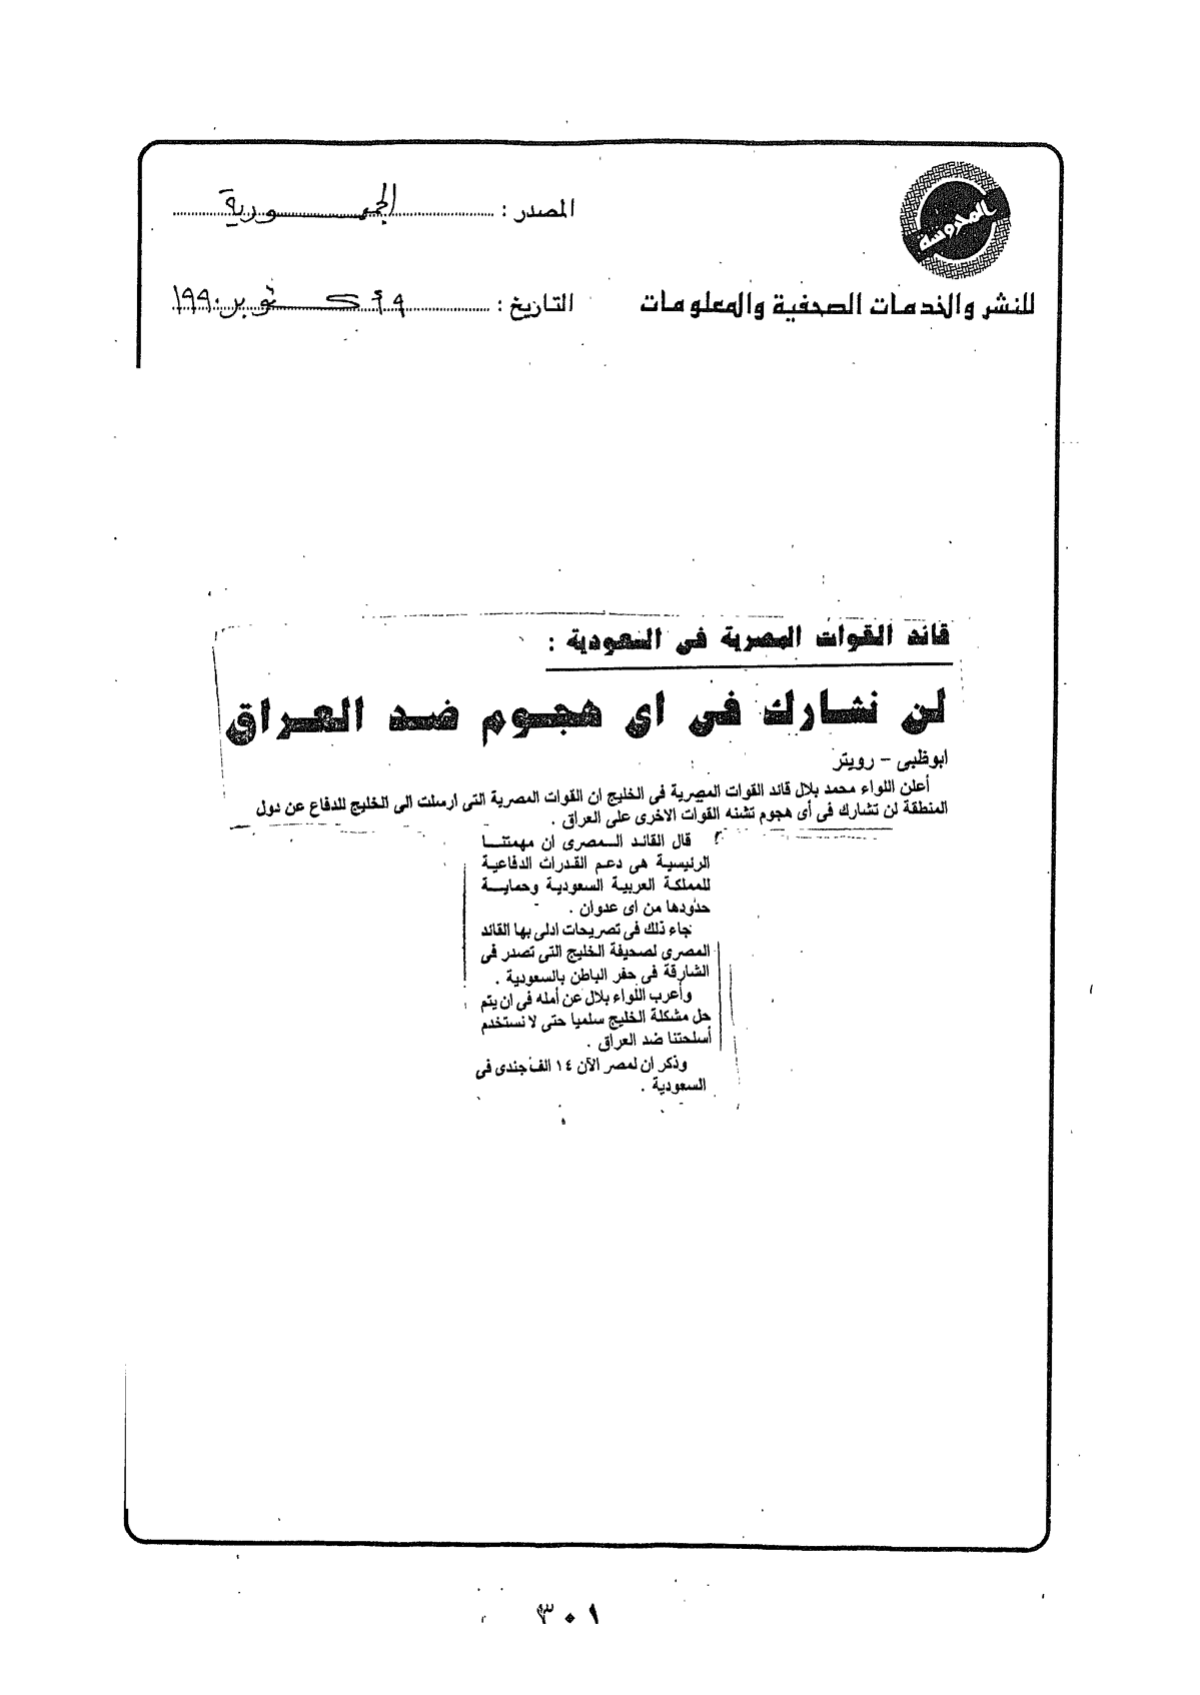 المحروسة
المصدر : الجمهورية
للنشر والخدمات الصحفية والمعلومات
التاريخ : أكتوبر ١٩٩٠
قائد القوات المصرية فى السعودية :
لن نشارك فى اى هجوم ضد العراق
ابوظبى – رويتر
أعلن اللواء محمد بلال قائد القوات المصرية فى الخليج ان القوات المصرية التى ارسلت الى الخليج للدفاع عن دول
المنطقة لن تشارك فى أى هجوم تشنه القوات الاخرى على العراق .
قال القائد المصرى ان مهمتنا
الرئيسية هى دعم القدرات الدفاعية
للمملكة العربية السعودية وحماية
حدودها من اى عدوان .
جاء ذلك فى تصريحات ادلى بها القائد
المصرى لصحيفة الخليج التى تصدر فى
الشارقة فى حفر الباطن بالسعودية .
وأعرب اللواء بلال عن أمله فى ان يتم
حل مشكلة الخليج سلميا حتى لا نستخدم
أسلحتنا ضد العراق .
وذكر ان لمصر الآن ١٤ الف جندى فى
السعودية .
٣٠١